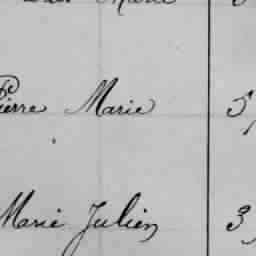 Marie
Pierre Marie 5,
Marie Julien 3,